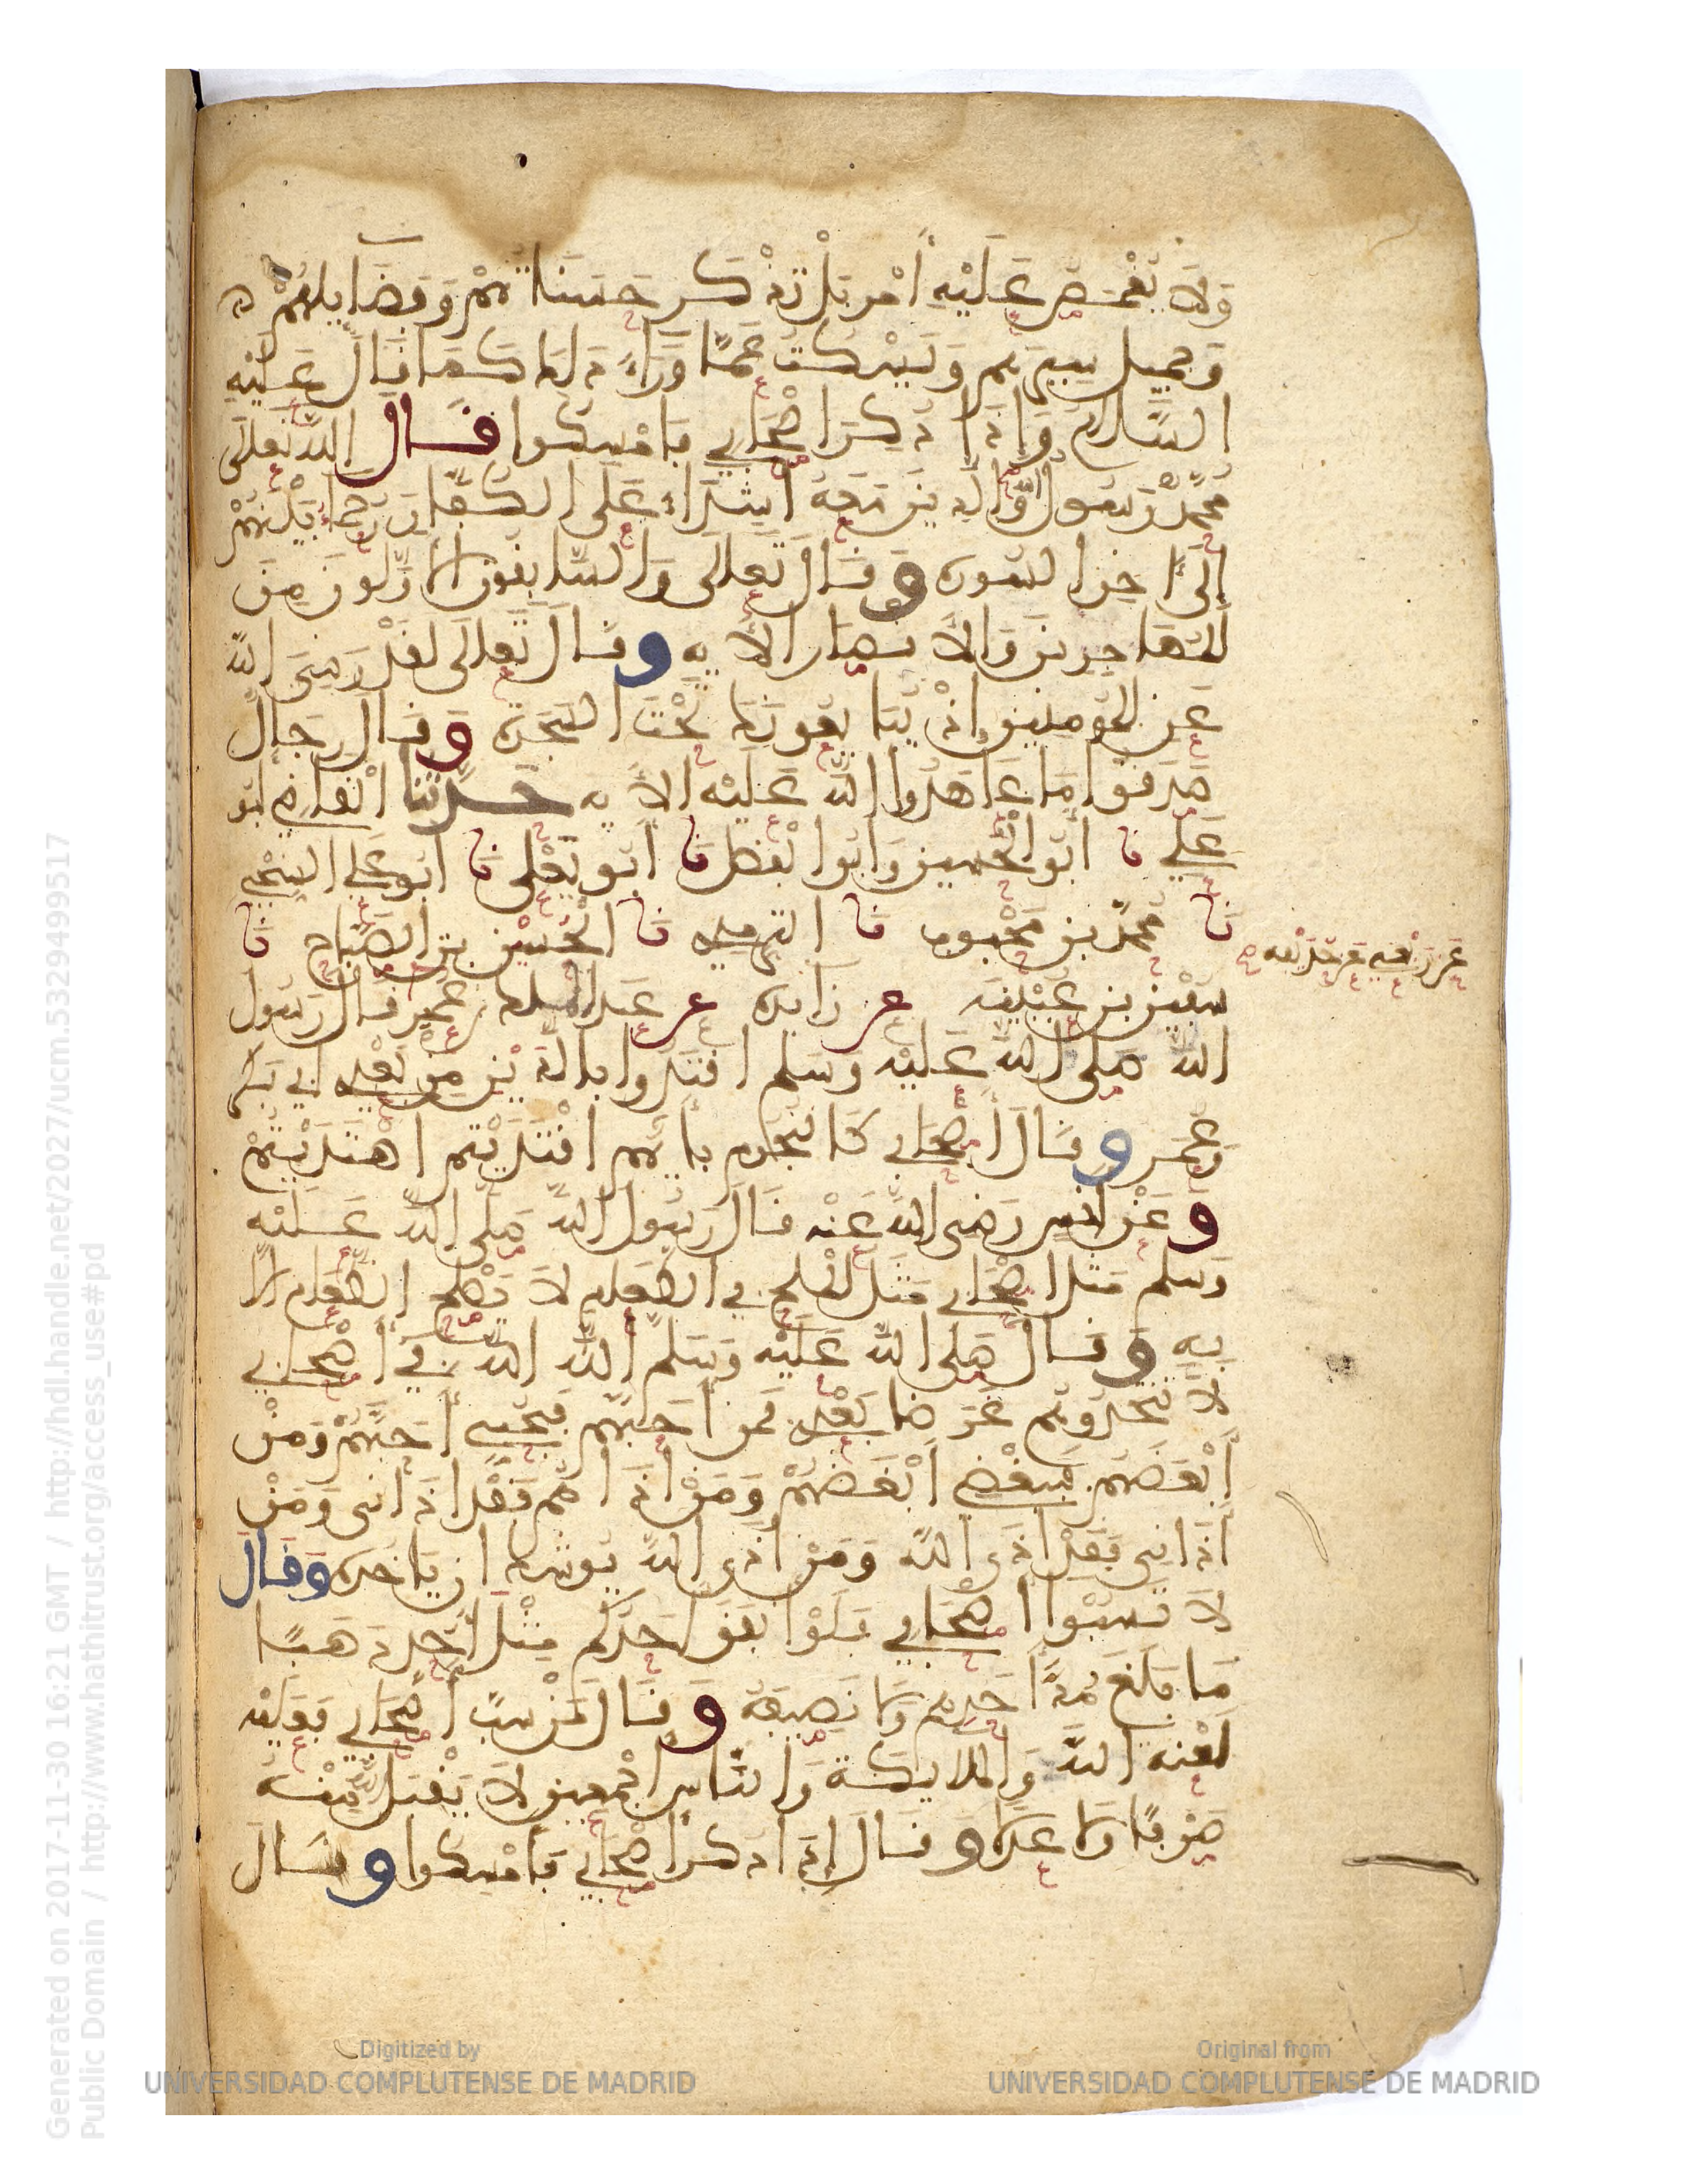 وَلَا يُغْمَصُ عَلَيْهِ أَمْرٌ بَلْ تُذْكَر حَسَنَاتُهُمْ وَفَضَايِلُهُمْ
وَجَمِيل سِيَرِهِم وَيُسْكَتَ عَمَّا وَرَاءَ ذَلِكَ كَمَا قَالَ عَلَيْهِ
السَّلَامُ وَإِذَا ذُكِرَ اصْحَابِي فَامْسِكُوا قَال اللهُ تَعَالَى
مُحَمَّدٌ رَسُولُ اللهِ وَالذِينَ مَعَهُ أَشِدَّاءُ عَلَى الكُفَّارِ رُحَمَاءُ بَيْنَهُمْ
إِلَى آخِرِ السُّورَة وَقَالَ تَعَالَى وَالسَّابِقُونَ الأَوَّلُونَ مِنَ
المُهَاجِرِينَ وَالأَنصَار الآيه وَقَالَ تَعَالَى لَقَدْ رَضِيَ اللهُ
عَنِ المُومِنِينَ إِذْ يُبَايِعُونَكَ تَحْتَ الشَّجَرَة وَقَالَ رِجَالٌ
صَدَقُوا مَا عَاهَدُوا اللهَ عَلَيْهِ الآيه حَدَّثَنَا القَاضِي أَبُو
عَلِي نَا أَبُو الحُسَيْنِ وَأَبُو الفَضْل نَا أَبُو يَعْلَى نَا أَبُو عَلِي السِّنْجِي
نَا مُحَمَّدُ بن مَحْبُوب نَا التِّرمِذِي نَا الحَسَنُ بنُ الصَّبَّاح نَا
سُفْيَنُ بن عُيَيْنَة عن زَايِدَة عن عَبْدِ المَلِكِ بن عُمَيْر
عَن رِبْعِي عَن حُذَيْفَه صح
قَالَ رَسُولُ
اللهِ صَلَى اللهُ عَلَيْهِ وَسَلم اقْتَدُوا بِالذَيْنِ مِنْ بَعْدِي أَبِي بَكْرٍ
وَعُمَر وَقَالَ أَصْحَابِي كَالنُّجُومِ بِأَيِّهِم اقْتَدَيْتُم اهْتَدَيْتُمْ
وَعَنْ أَنَسٍ رَضِيَ اللهُ عَنْه قَالَ رَسُولُ اللهِ صَلى اللهُ عَلَيْهِ
وَسَلم مَثَلُ اصْحَابِي مَثَلُ المِلْحِ فِي الطَّعَامِ لَا يَصْلُحُ الطَّعَامُ إِلَّا
بِهِ وَقَالَ صَلى اللهُ عَلَيْهِ وَسَلم اللهَ اللهَ فِي أَصْحَابِي
لَا تَتَّخِذُوهُم غَرَضًا بَعْدِي فَمَن أَحَبَّهُم فَبِحُبِّي أَحَبَّهُمْ وَمَنْ
أَبْغَضَهُم فَبِبُغْضِي أَبْغَضَهُمْ وَمَنْ اذَاهُم فَقَدْ اذَانِي وَمَنْ
اذَانِي فَقَدْ اذَى اللهَ وَمَن اذَى اللهَ يُوشِك ان يَاخُذَه وَقَالَ
لَا تَسُبُّوا أَصْحَابِي فَلَوْ انْفَقَ أَحَدُكُم مِثْلَ أُحُدٍ ذَهَبًا
مَا بَلَغَ مُدَّ أَحَدِهِم وَلَا نَصِيفَهُ وَقَالَ مَنْ سَبَّ أَصْحَابِي فَعَلَيْهِ
لَعْنَةُ اللهِ وَالمَلَايِكَةِ وَالنَّاسِ أَجْمَعِينَ لَا يَقْبَلُ اللهُ مِنْهُ
صَرْفًا وَلَا عَدْلًا وَقَالَ إِذَا ذُكِرَ أَصْحَابِي فَامْسِكُوا وَقَالَ
Digitized by
UNIVERSIDAD COMPLUTENSE DE MADRID
Original from
UNIVERSIDAD COMPLUTENSE DE MADRID
Generated on 2017-11-30 16:21 GMT / http://hdl.handle.net/2027/ucm.5329499517
Public Domain / http://www.hathitrust.org/access_use#pd